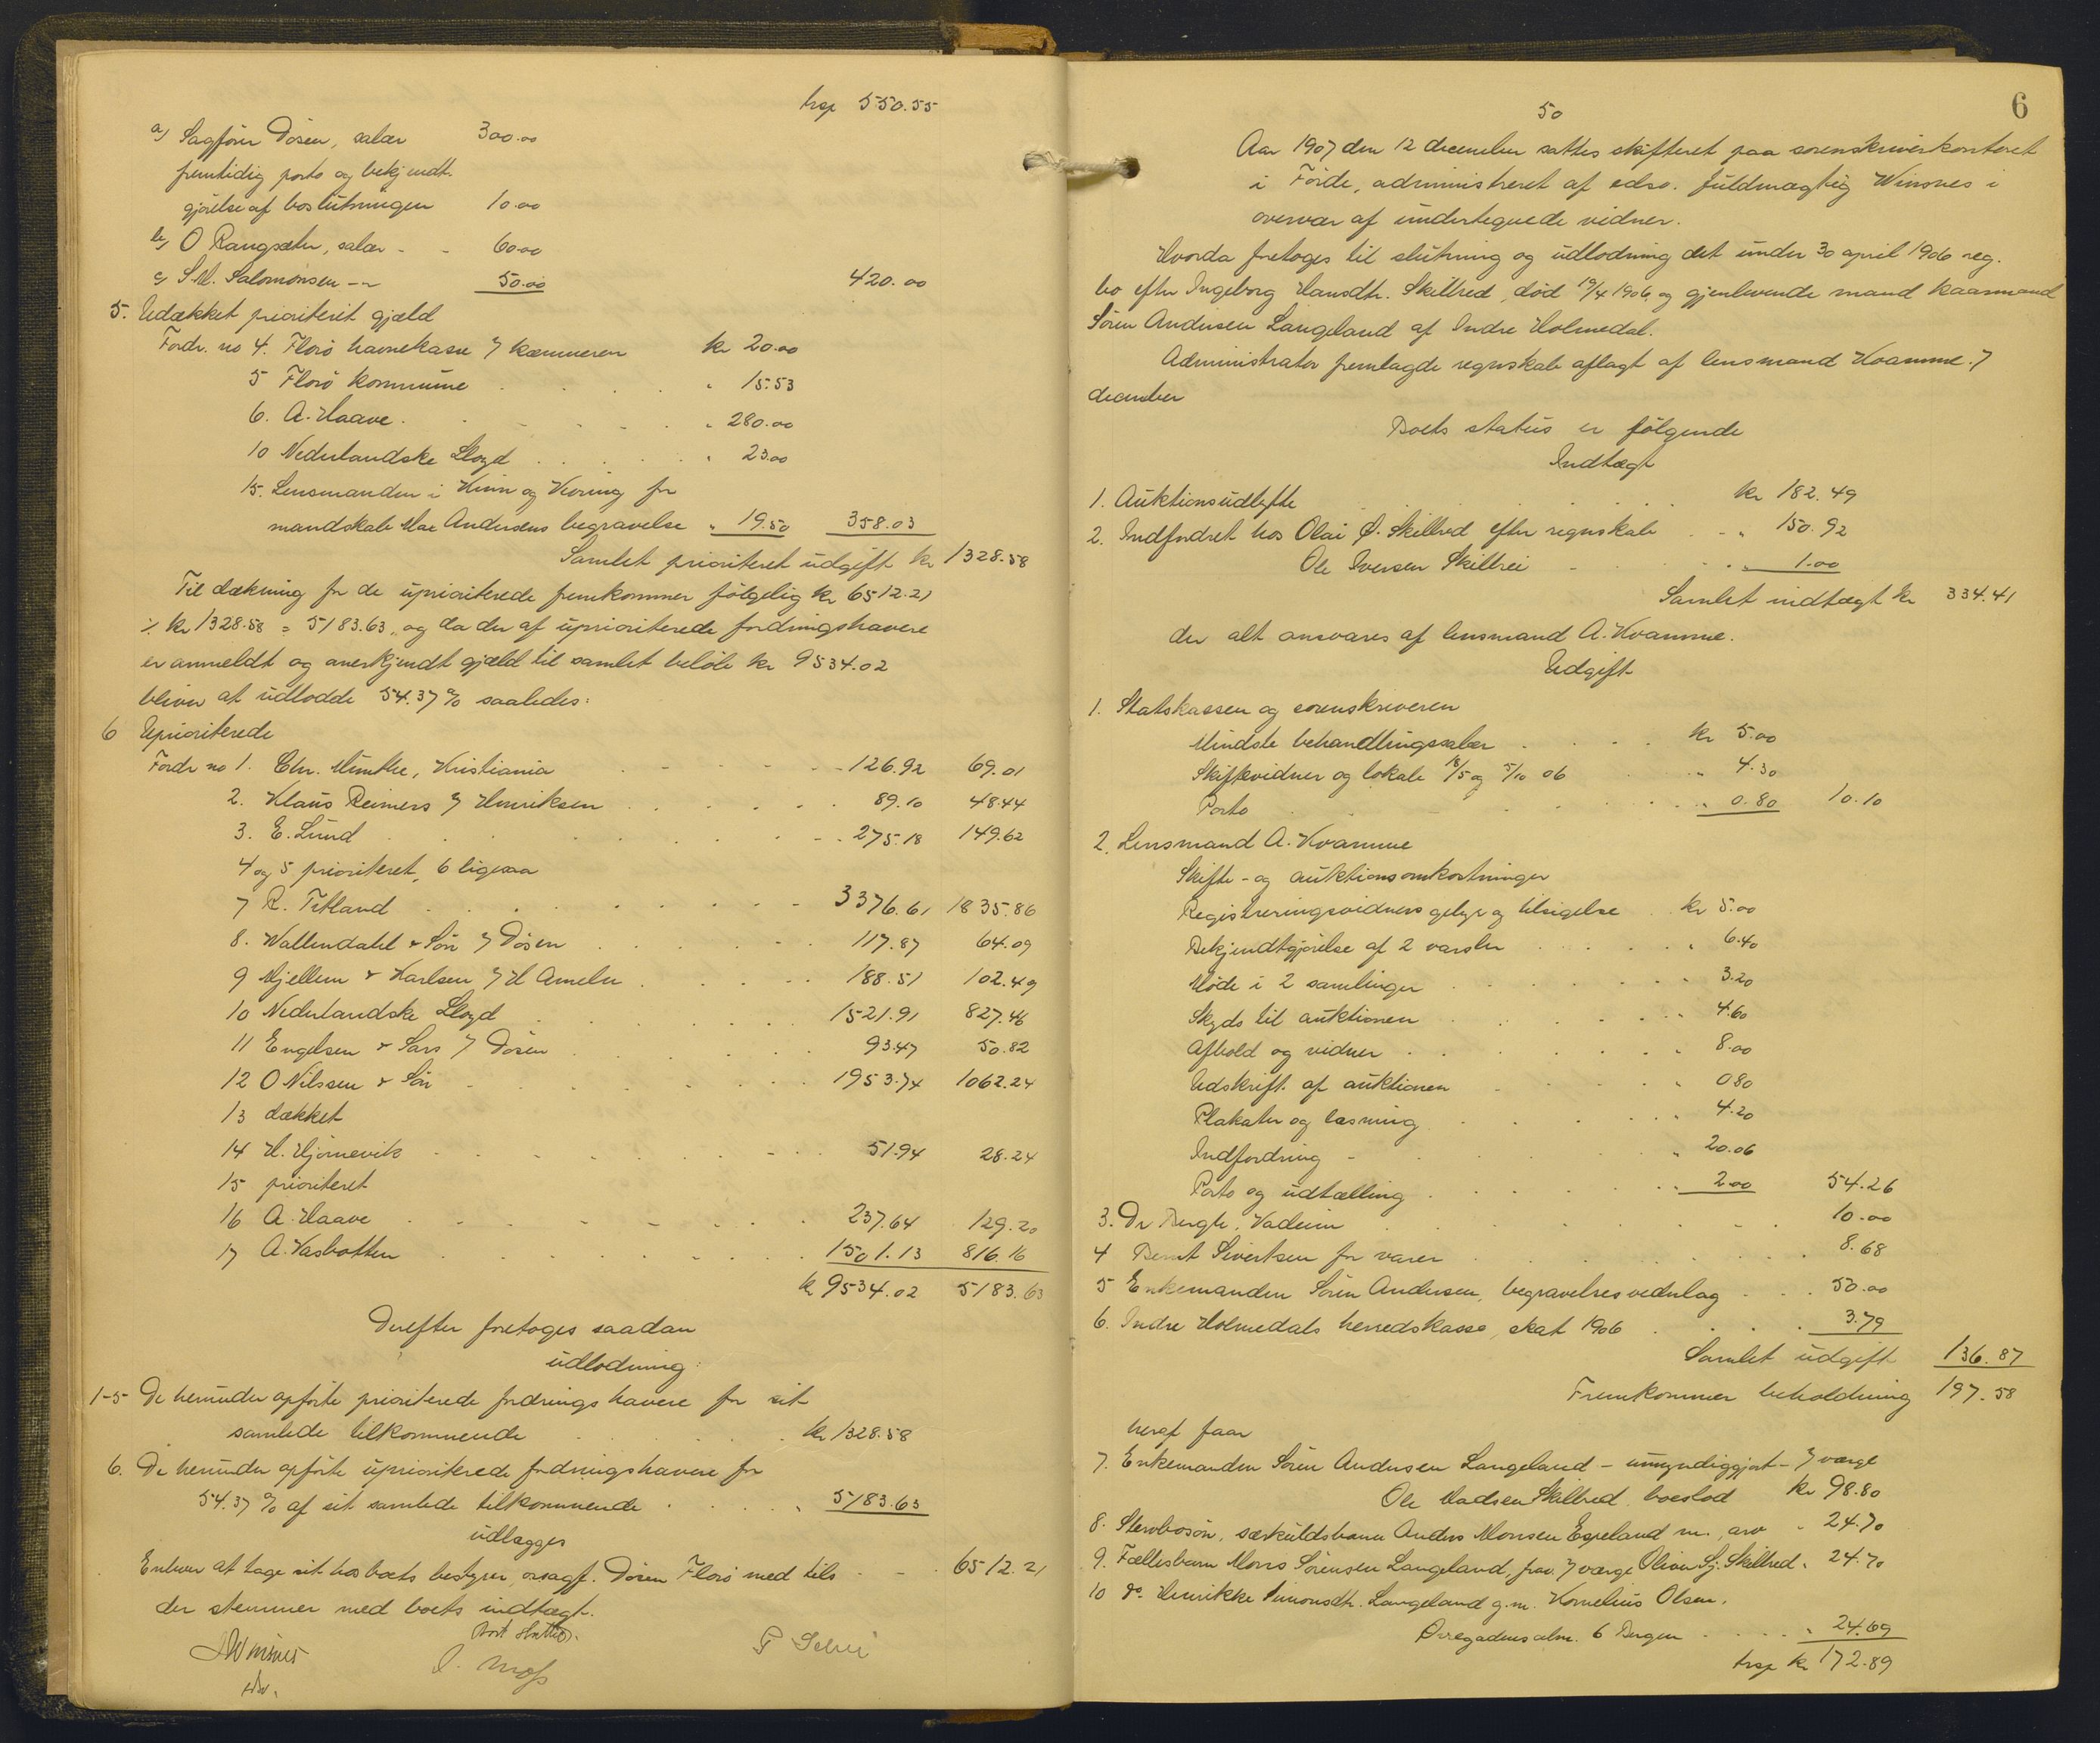 trsp 550.55
a) Sagförer Dösen, salær 300.00
fremtidig porto og bekjendt-
gjörelse af boslutningen 10.00
b) O Rangsæter, salær - - 60.00
c) S.M. Salomonsen -"- 50.00 420.00
5. Udækket prioriteret gjæld
Fordr. no 4. Florö havnekasse v/ kæmneren kr 20.00
5 Florö kommune " 15.53
6. A. Haave " 280.00
10 Nederlandske Lloyd " 23.00
15. Lensmanden i Kinn og Vevring for
mandskab Mac Andersens begravelse " 19.50 358.03
Samlet prioriteret udgift kr 1328.58
Til dækning for de uprioriterede fremkommer fölgelig kr 6512.21
÷ kr 1328.58 = 5183.63, og da der af uprioriterede fordringshavere
er anmeldt og anerkjendt gjæld til samlet belöb kr 9534.02
bliver at udlodde 54.37 % saaledes:
6 Uprioriterede
Fordr no 1. Chr. Minthe, Kristiania 126.92 69.01
2. Klaus Reimers v/ Henriksen 89.10 48.44
3. E. Lund 275.18 149.62
4 og 5 prioriteret, 6 ligesaa
7 R. Titland 3376.61 1835.86
8. Wallendahl & Sön v/ Dösen 117.87 64.09
9 Mjellem & Karlsen v/ H Ameln 188.51 102.49
10 Nederlandske Lloyd 1521.91 827.46
11 Engelsen & Sars v/ Dösen 93.47 50.82
12 O Nilssen & Sön 1953.74 1062.24
13 dækket
14 H. Hjörnevik 51.94 28.24
15 prioriteret
16 A. Haave 237.64 129.20
17 A. Vasbotten 1501.13 816.16
kr 9534.02 5183.63
Derefter foretoges saadan
udlodning:
1-5 De herunder opförte prioriterede fordringshavere for sit
samlede tilkommende kr 1328.58
6. De herunder opförte uprioriterede fordringshavere for
54.37 % af sit samlede tilkommende " 5183.63
udlægges
Enhver at tage sit hos boets bestyrer, orsagf. Dösen Florö med tils - - 6512.21
der stemmer med boets indtægt.
Winsnes
edsv.
O. Moss
P Selvi
6
50
Aar 1907 den 12 december sattes skifteret paa sorenskriverkontoret
i Förde, administreret af edsv. fuldmægtig Winsnes i
overvær af undertegnede vidner.
Hvorda foretoges til slutning og udlodning det under 30 april 1906 reg.
bo efter Ingeborg Hansdtr. Skilbred, död 19/4 1906, og gjenlevende mand kaarmand
Sören Andersen Langeland af Indre Holmedal.
Administrator fremlagde regnskab aflagt af lensmand Kvamme 7
december
Boets status er fölgende
Indtægt
1. Auktionsudbytte kr 182.49
2. Indfordret hos Olai Ø. Skilbred efter regnskab - " 150.92
Ole Iversen Skilbrei " 1.00
Samlet indtægt kr 334.41
der alt ansvares af lensmand A. Kvamme.
Udgift
1. Statskassen og sorenskriveren
Mindste behandlingssalær kr 5.00
Skiftevidner og lokale 18/5 og 5/10 06 " 4.30
Porto " 0.80 10.10
2. Lensmand A. Kvamme
Skifte- og auktionsomkostninger
Registreringsvidners gebyr og tilsigelse kr 5.00
Bekjendtgjörelse af 2 varsler " 6.40
Möde i 2 samlinger " 3.20
Skyds til auktionen " 4.60
Afhold og vidner " 8.00
Udskrift af auktionen " 0 80
Plakater og læsning " 4.20
Indfordring " 20.06
Porto og udtælling " 2.00 54.26
3. Dr Bergh, Vadeim 10.00
4 Bernt Sivertsen for varer 8.68
5 Enkemanden Sören Andersen, begravelsesvederlag 50.00
6. Indre Holmedals herredskasse, skat 1906 3.79
Samlet udgift 136.87
Fremkommer beholdning 197.58
heraf faar
7. Enkemanden Sören Andersen Langeland - umyndiggjort - v/ værge
Ole Madsen Skilbred, boeslod kr 98.80
8. Stervbosön, særkuldsbarn Anders Monsen Espeland m., arv " 24.70
9. Fællesbarn Mons Sörensen Langeland, frav. v/ værge Oliver Sj. Skilbred " 24.70
10 do. Henrikke Simonsdtr. Langeland g.m. Kornelius Olsen,
Øvregadens alm. 6 Bergen " 24.69
trsp kr 172.89